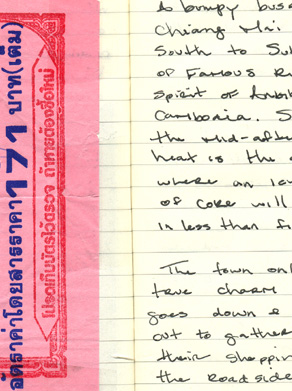 อัตราค่าโดยสารราคา 171 บาท(เต็ม)
โปรดเก็บบัตรไว้ตรวจ ถ้าหายต้องซื้อใหม่
A bumpy bus
Chiang Mai
South to Su
of Famous R
Spirit of
Cambodia. S
the Mid-afte
heat is the
where an
of Coke will
in less than
The town onl
true charm
goes down &
out to gather
their shoppin
the Roadside